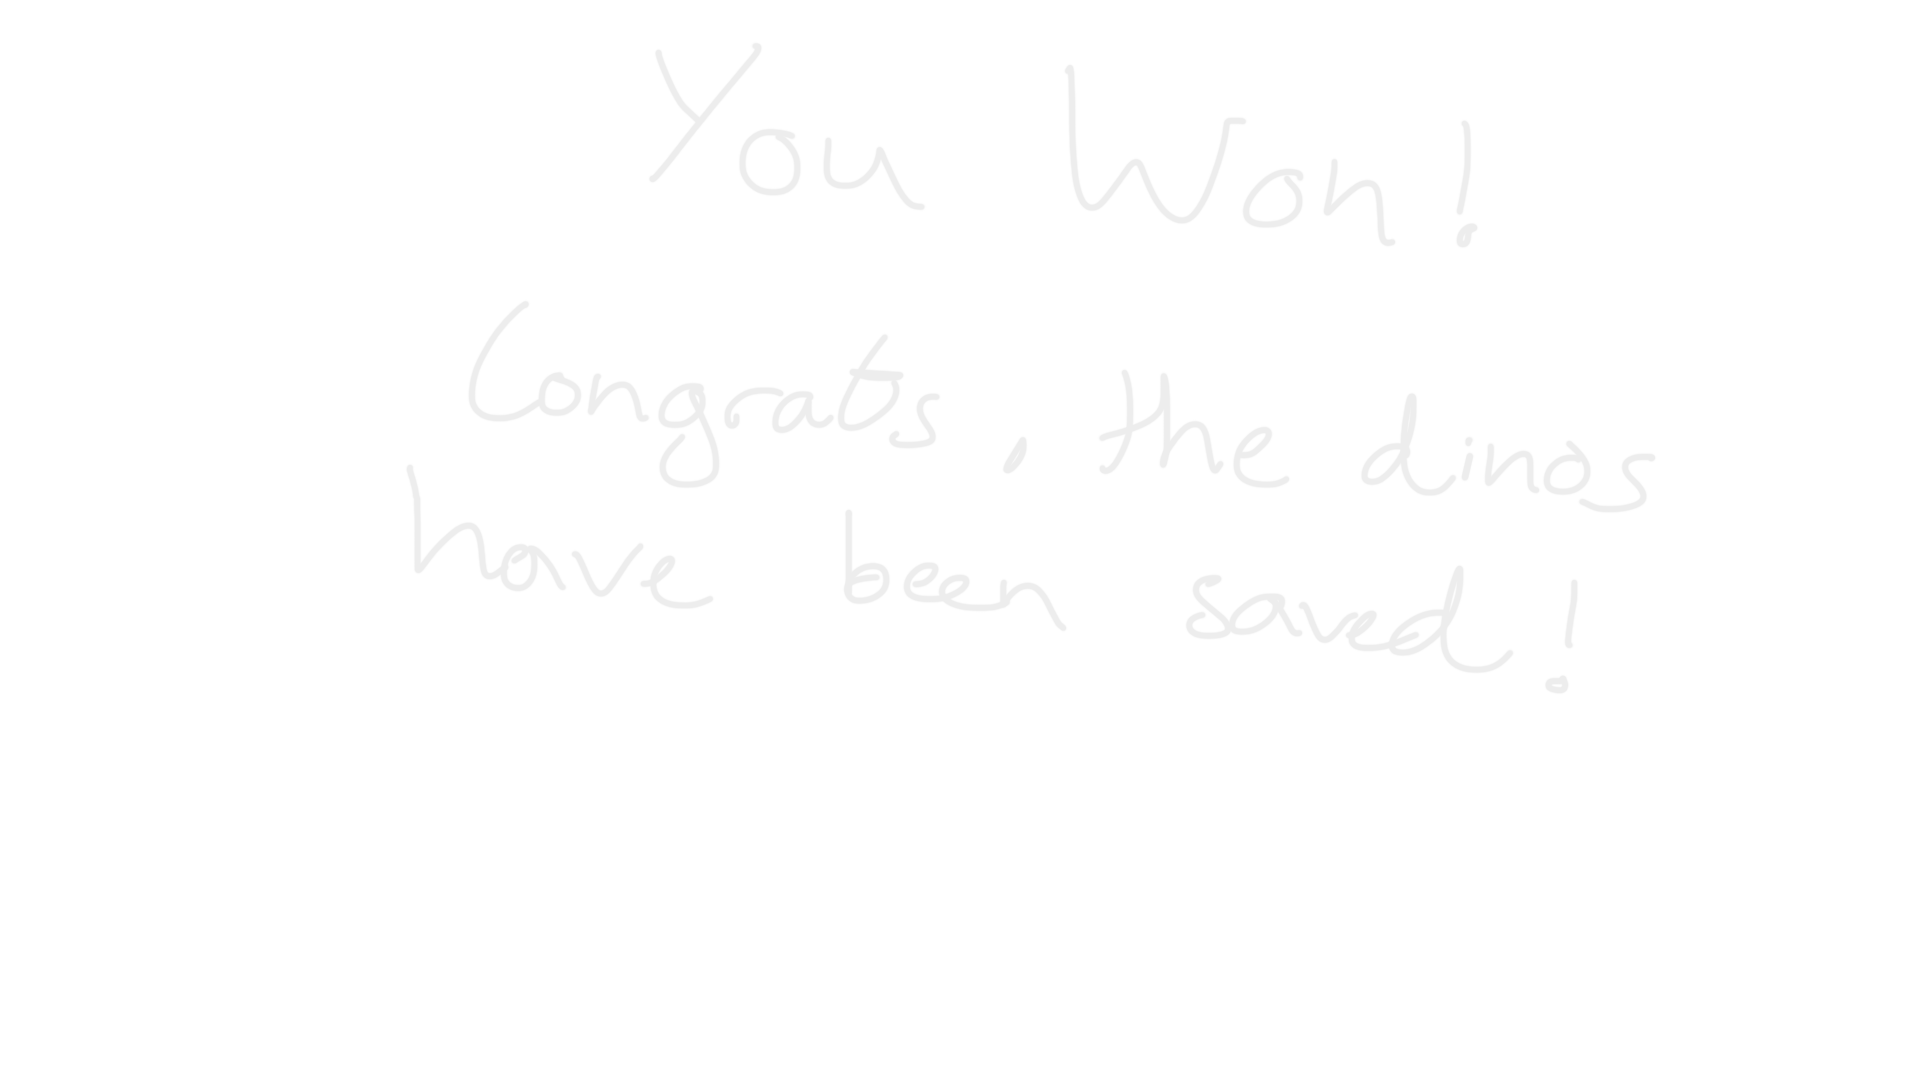 You Won!
Congrats, the dinos
have been saved!